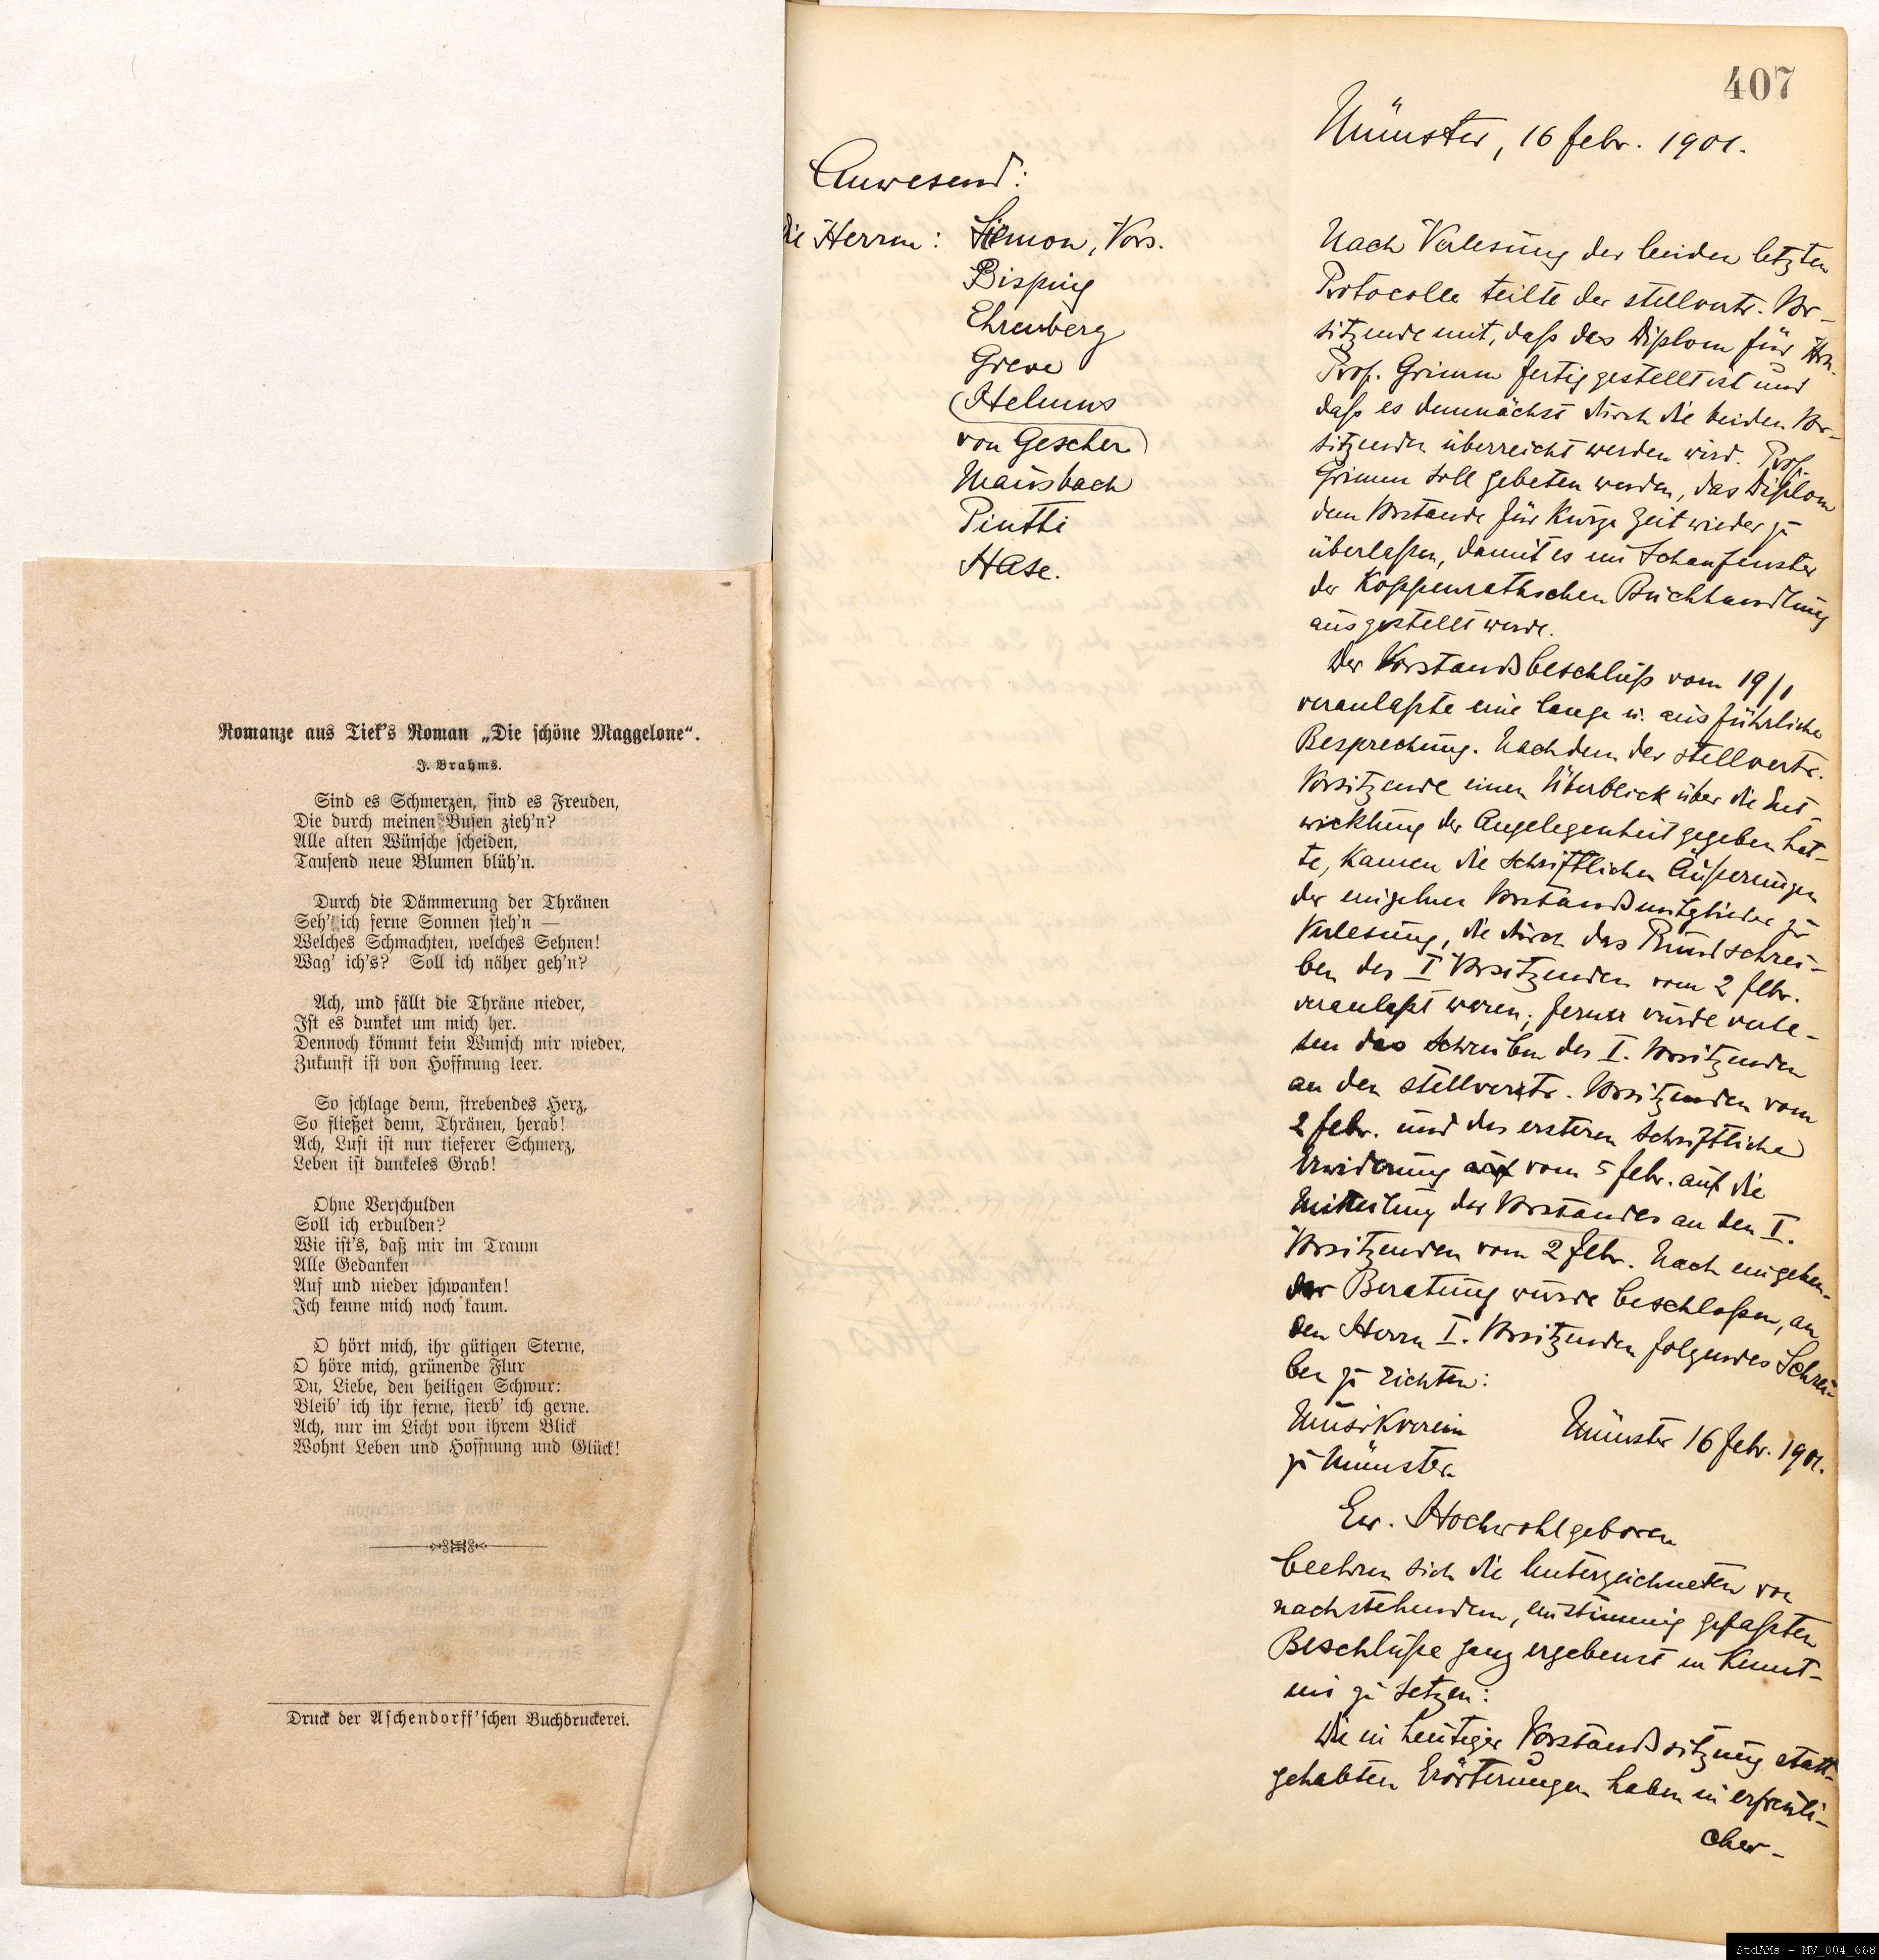 Romanze aus Tiek's Roman „Die schöne Maggelone“.
J. Brahms.
Sind es Schmerzen, sind es Freuden,
Die durch meinen Busen zieh'n?
Alle alten Wünsche scheiden,
Tausend neue Blumen blüh'n.
Durch die Dämmerung der Thränen
Seh' ich ferne Sonnen steh'n —
Welches Schmachten, welches Sehnen!
Wag' ich's? Soll ich näher geh'n?
Ach, und fällt die Thräne nieder,
Ist es dunket um mich her.
Dennoch kömmt kein Wunsch mir wieder,
Zukunft ist von Hoffnung leer.
So schlage denn, strebendes Herz,
So fließet denn, Thränen, herab!
Ach, Lust ist nur tieferer Schmerz,
Leben ist dunkeles Grab!
Ohne Verschulden
Soll ich erdulden?
Wie ist's, daß mir im Traum
Alle Gedanken
Auf und nieder schwanken!
Ich kenne mich noch kaum.
O hört mich, ihr gütigen Sterne,
O höre mich, grünende Flur
Du, Liebe, den heiligen Schwur:
Bleib' ich ihr ferne, sterb' ich gerne.
Ach, nur im Licht von ihrem Blick
Wohnt Leben und Hoffnung und Glück!
Druck der Aschendorff'schen Buchdruckerei.
407
Münster, 16 Febr. 1901.
Anwesend:
die Herren: Siemon, Vors.
Bisping
Ehrenberg
Greve
(Helmus
von Gescher)
Mausbach
Piutti
Hase.
Nach Verlesung der beiden letzten
Protocolle teilte der stellvertr. Vor-
sitzende mit, daß das Diplom für Hrn.
Prof. Grimm fertig gestellt ist und
daß es demnächst durch die beiden Vor-
sitzenden überreicht werden wird. Prof.
Grimm soll gebeten werden, das Diplom
dem Vorstande für kurze Zeit wieder zu
überlaßen, damit es im Schaufenster
der Koppenrathschen Buchhandlung
ausgestellt werde.
Der Vorstandsbeschluß vom 19/1
veranlaßte eine lange u. ausführliche
Besprechung. Nachdem der stellvertr.
Vorsitzende einen Überblick über die Ent-
wicklung der Angelegenheit gegeben hat-
te, kamen die schriftlichen Äußerungen
der einzelnen Vorstandsmitglieder zur
Verlesung, die durch das Rundschrei-
ben des I Vorsitzenden vom 2 Febr.
veranlaßt waren; ferner wurde verle-
sen das Schreiben des I. Vorsitzenden
an den stellvertr. Vorsitzenden vom
2 Febr. und des ersteren schriftliche
Erwiderung vom 5 Febr. auf die
Mitteilung des Vorstandes an den I.
Vorsitzenden vom 2 Febr. Nach eingehen-
der Beratung wurde beschloßen, an
den Herrn I. Vorsitzenden folgendes Schrei-
ben zu richten:
Musikverein Münster 16 Febr. 1901.
zu Münster.
Ew. Hochwohlgeboren
beehren sich die Unterzeichneten von
nachstehendem, einstimmig gefaßten
Beschluße ganz ergebenst in Kennt-
nis zu setzen:
Die in heutiger Vorstandssitzung statt-
gehabten Erörterungen haben in erfreuli-
cher-
StdAMs - MV_004_668